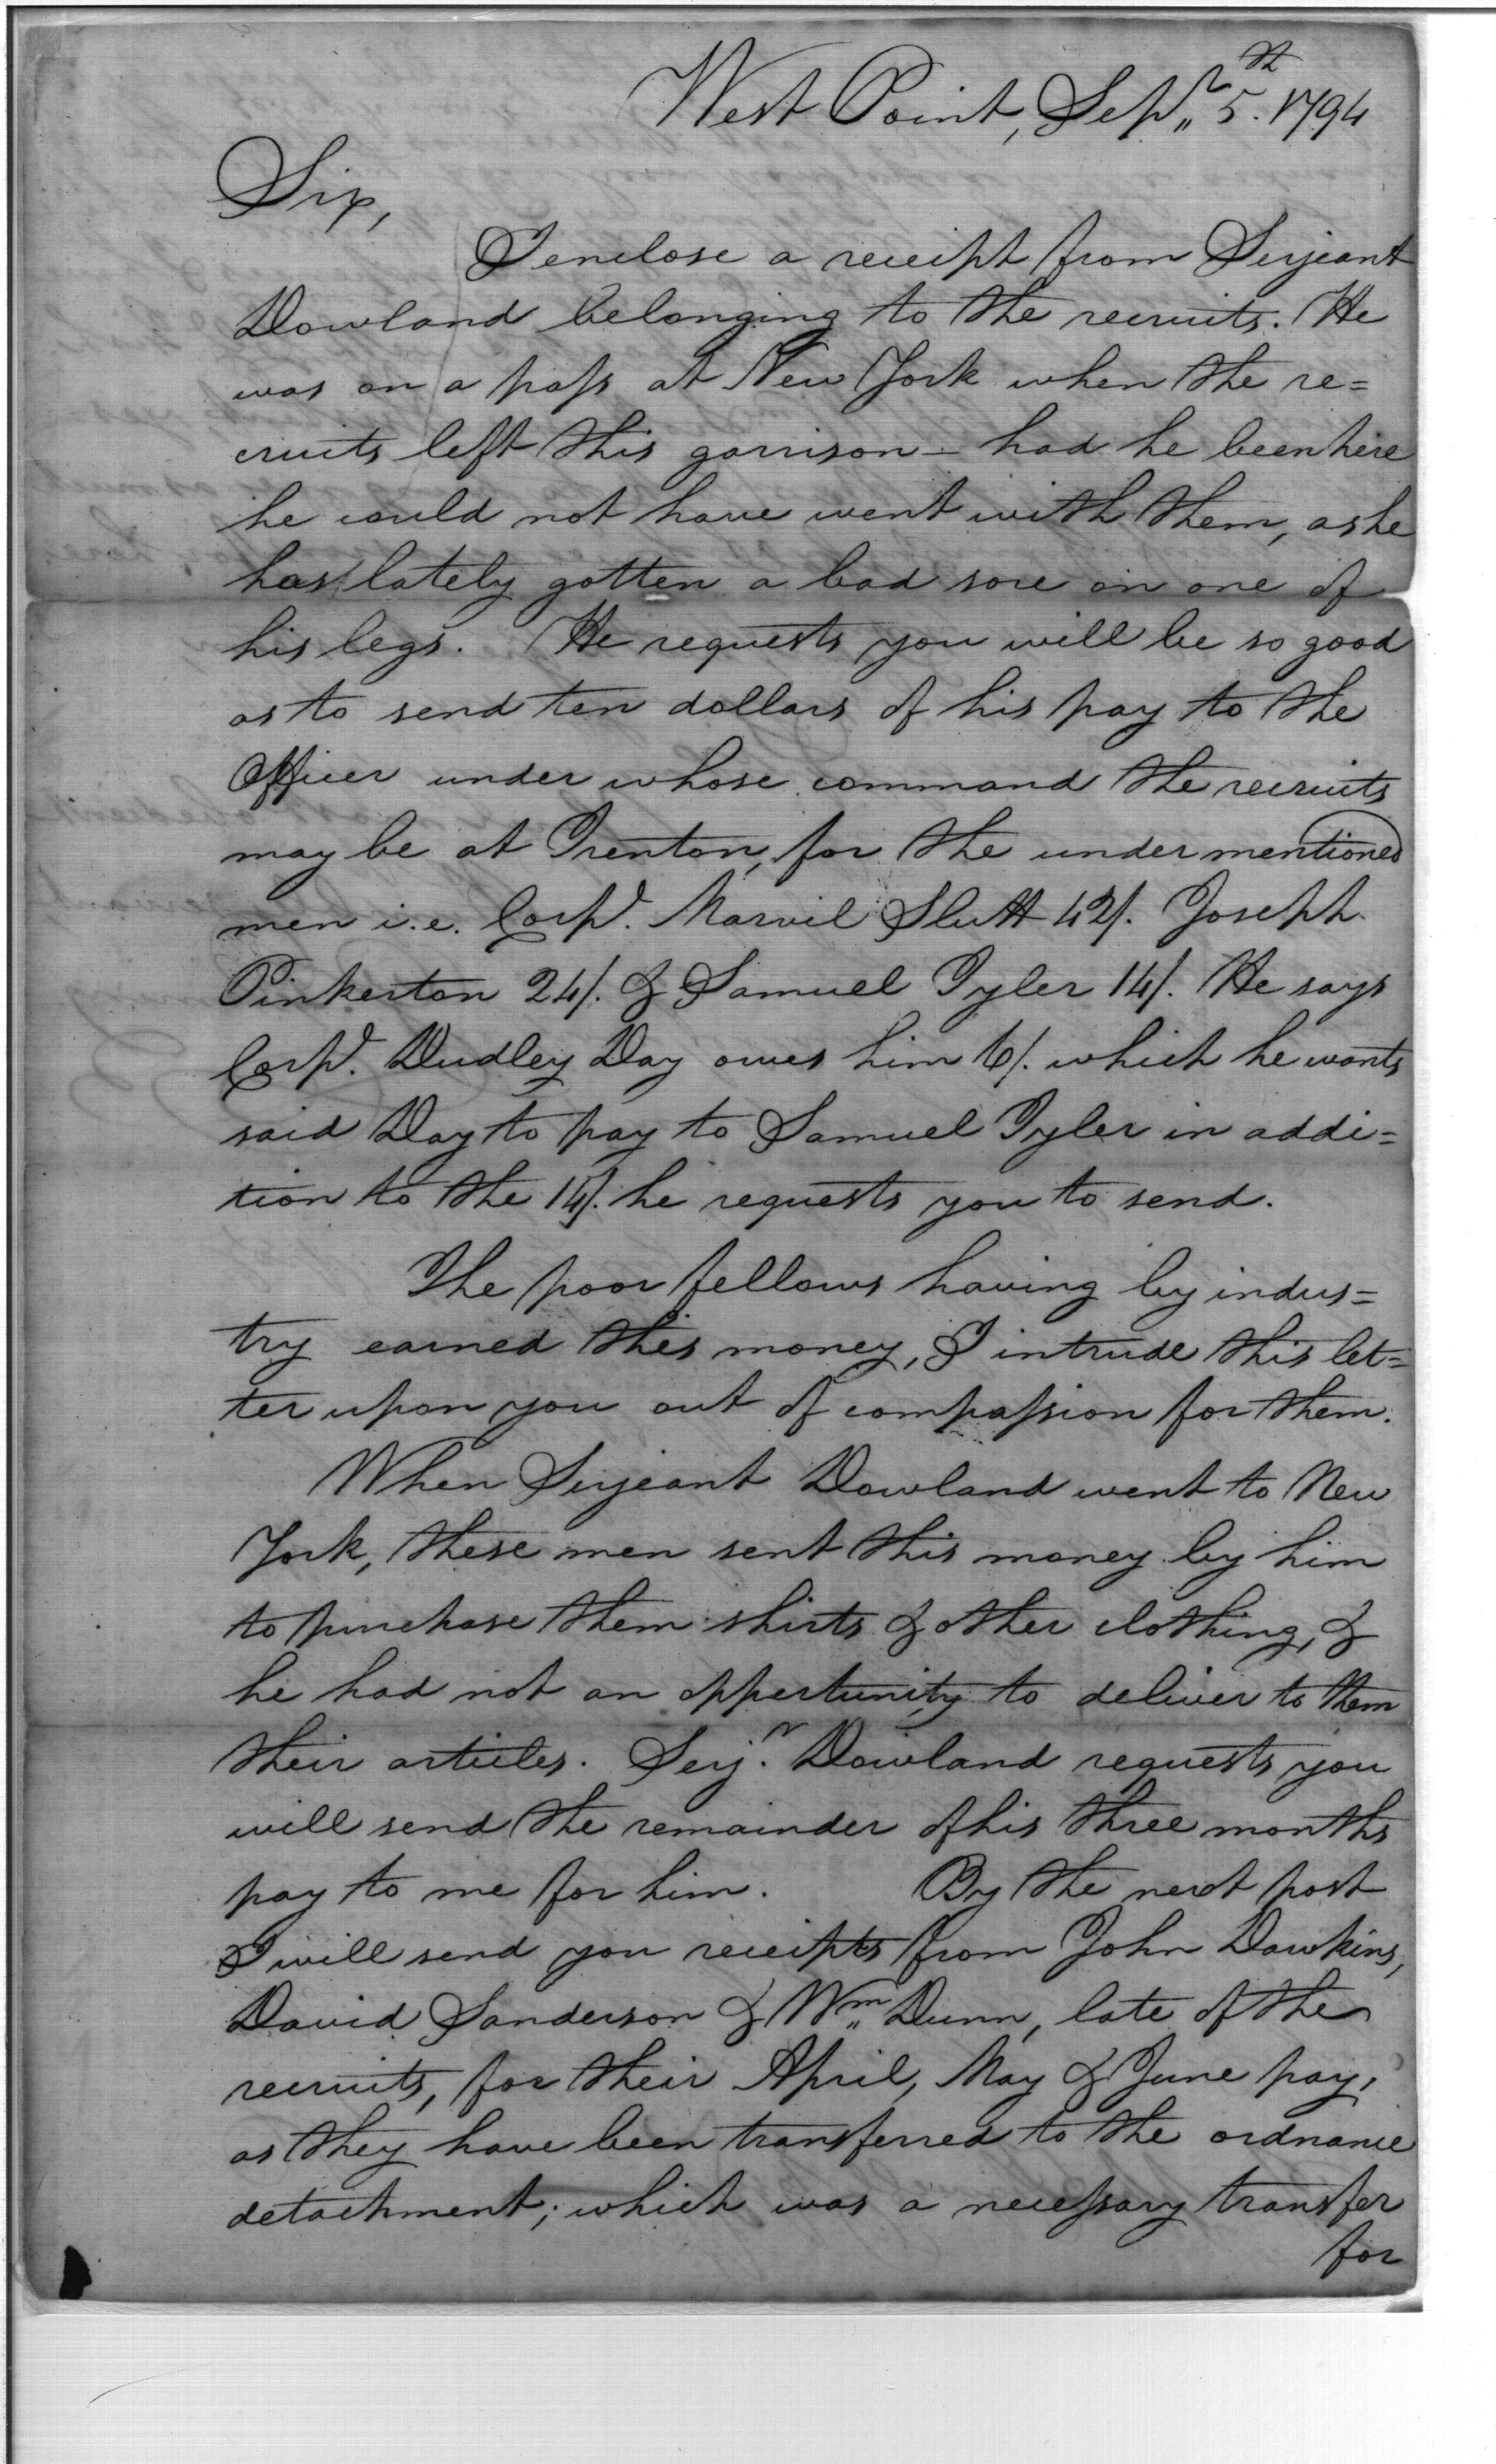 West Point, Sepr. 5th. 1794
Sir,
I enclose a receipt from Serjeant
Dowland belonging to the recruits. He
was on a pass at New York when the re=
cruits left this garrison – had he been here
he could not have went with them, as he
has lately gotten a bad sore on one of
his legs. He requests you will be so good
as to send ten dollars of his pay to the
Officer under whose command the recruits
may be at Trenton, for the undermentioned
men i.e. Corpl. Marvil Slutt 42/. Joseph
Pinkerton 24/. & Samuel Tyler 14/. He says
Corpl. Dudley Day owes him 6/. which he wants
said Day to pay to Samuel Tyler in addi=
tion to the 14/. he requests you to send.
The poor fellows having by indus=
try earned this money, I intrude this let=
ter upon you out of compassion for them.
When Serjeant Dowland went to New
York, these men sent this money by him
to purchase them shirts & other clothing, &
he had not an oppertunity to deliver to them
their articles. Serjt. Dowland requests you
will send the remainder of his three months
pay to me for him. By the next post
I will send you receipts from John Dawkins,
David Sanderson & Wm. Dunn, late of the
recruits, for their April, May & June pay,
as they have been transferred to the ordnance
detachment; which was a necessary transfer
for